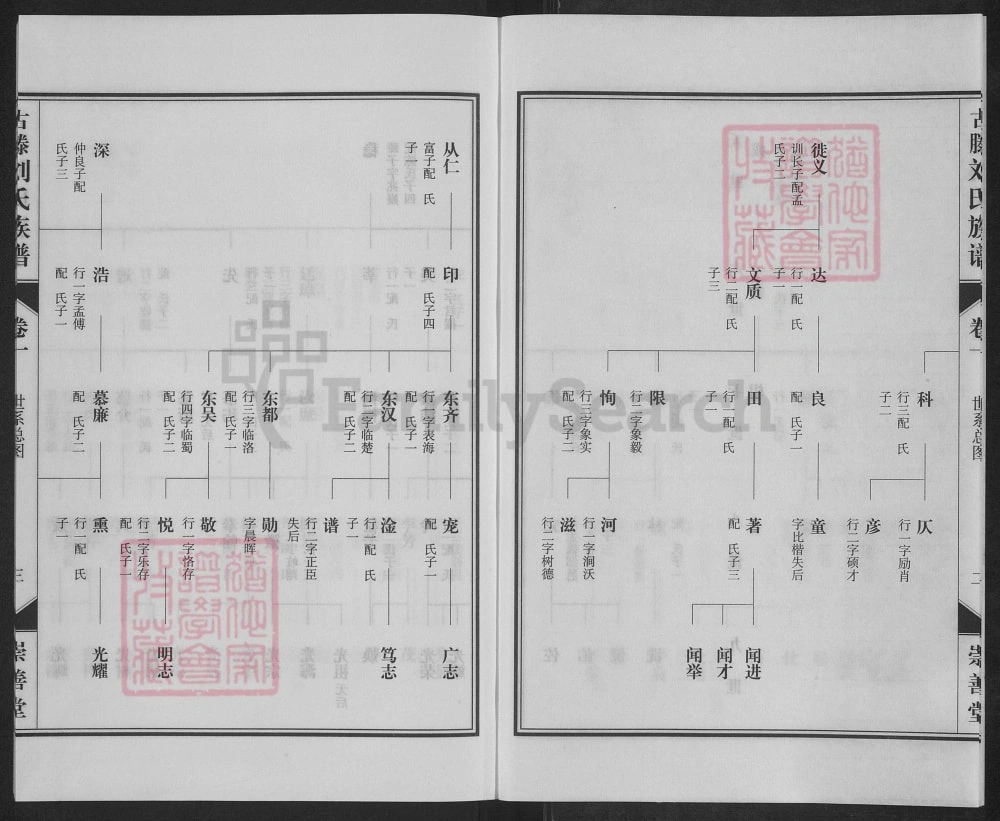 古滕刘氏族谱
卷一
世系总图
二
崇善堂
徙义
训长子配孟
氏子二
达
行一配 氏
子一
文质
行二配 氏
子三
科
行三配 氏
子二
良
配 氏子一
田
行一配 氏
子一
限
行二字象毅
恂
行三字象实
配 氏子二
仄
行一字励肖
彦
行二字硕才
童
字比楷失后
著
配 氏子三
河
行一字涧沃
滋
行二字树德
闻进
闻才
闻举
从仁
富子配 氏
子一
印
配 氏子四
深
仲良子配
氏子三
浩
行一字孟傅
配 氏子一
东齐
行一字表海
配 氏子一
东汉
行二字临楚
配 氏子二
东都
行三字临洛
配 氏子一
东吴
行四字临蜀
配 氏子二
慕廉
配 氏子二
宠
配 氏子一
淦
行一配 氏
子一
谱
行二字正臣
失后
勋
字晨晖
敬
行一字恪存
悦
行二字乐存
配 氏子一
熏
行一配 氏
子一
广志
笃志
明志
光耀
古滕刘氏族谱
卷一
世系总图
三
崇善堂
FamilySearch